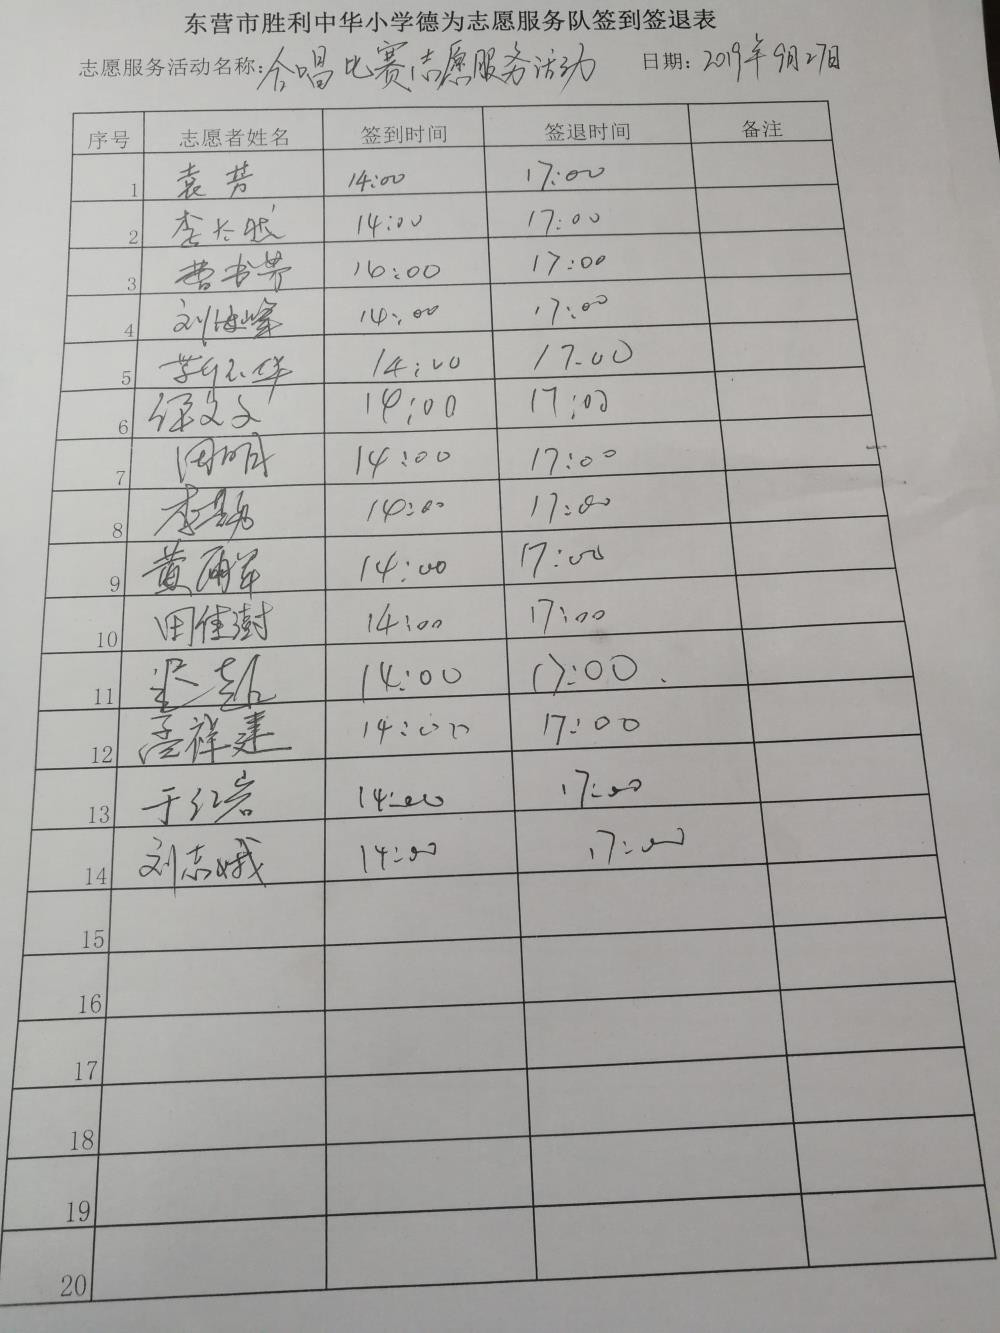 东营市胜利中华小学德为志愿服务队签到签退表
志愿服务活动名称:合唱比赛志愿服务活动 日期:2019年9月27日
序号 志愿者姓名 签到时间 签退时间 备注
1 袁芳 14:00 17:00
2 14:00 17:00
3 曹书芳 16:00 17:00
4 刘海峰 14:00 17:00
5 14:00 17:00
6 徐文文 14:00 17:00
7 周明 14:00 17:00
8 14:00 17:00
9 14:00 17:00
10 田佳澍 14:00 17:00
11 14:00 17:00
12 孟祥建 14:00 17:00
13 于红岩 14:00 17:00
14 刘志娥 14:00 17:00
15
16
17
18
19
20